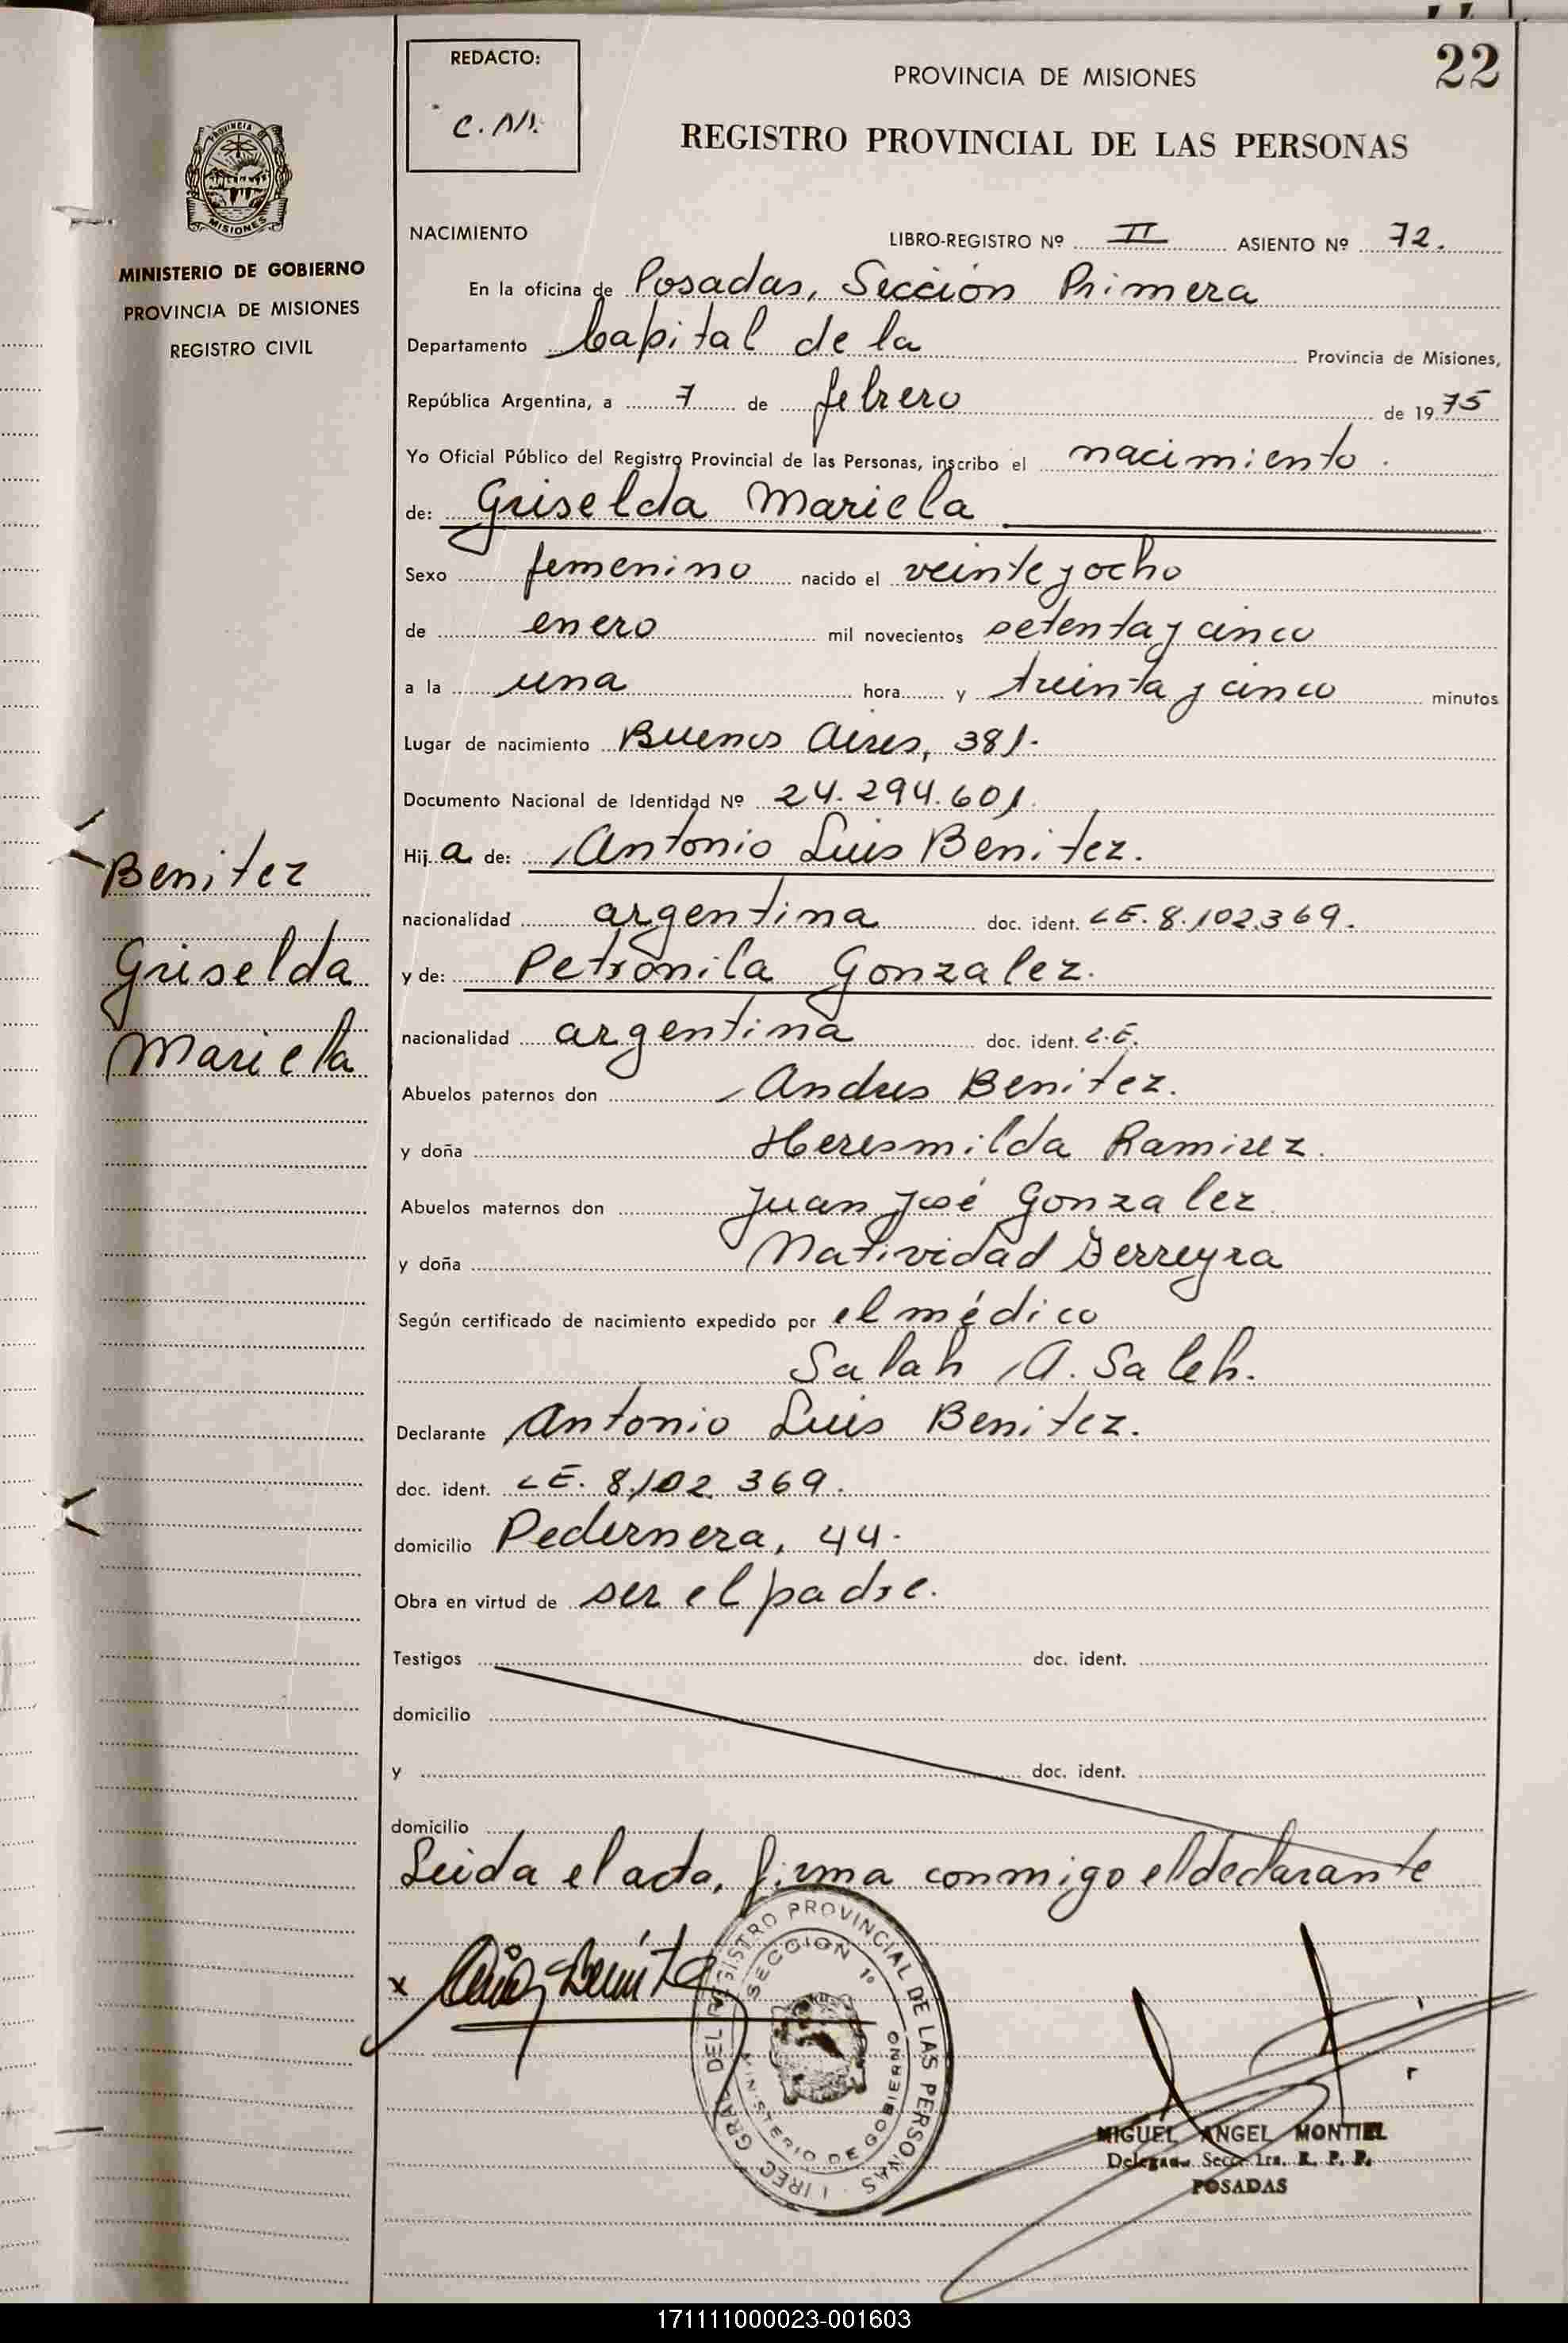 REDACTO:
C.M.
PROVINCIA DE MISIONES
22
REGISTRO PROVINCIAL DE LAS PERSONAS
PROVINCIA
MISIONES
MINISTERIO DE GOBIERNO
PROVINCIA DE MISIONES
REGISTRO CIVIL
NACIMIENTO LIBRO-REGISTRO Nº II ASIENTO Nº 72.
En la oficina de Posadas, Sección Primera
Departamento Capital de la Provincia de Misiones,
República Argentina, a 7 de febrero de 1975
Yo Oficial Público del Registro Provincial de las Personas, inscribo el nacimiento.
de: Griselda Mariela
Sexo femenino nacido el veinte y ocho
de enero mil novecientos setenta y cinco
a la una hora y treinta y cinco minutos
Lugar de nacimiento Buenos Aires, 381.
Documento Nacional de Identidad Nº 24.294.601.
Hija de: Antonio Luis Benitez.
nacionalidad argentina doc. ident. LE. 8.102.369.
y de: Petronila Gonzalez.
nacionalidad argentina doc. ident. L.E.
Abuelos paternos don Andres Benitez.
y doña Heresmilda Ramirez.
Abuelos maternos don Juan José Gonzalez
y doña Natividad Ferreyra
Según certificado de nacimiento expedido por el médico
Salah A. Saleh.
Declarante Antonio Luis Benitez.
doc. ident. LE. 8.102.369.
domicilio Pedernera, 44.
Obra en virtud de ser el padre.
Testigos doc. ident.
domicilio
y doc. ident.
domicilio
Leida el acta, firma conmigo el declarante
Benitez
Griselda
Mariela
x
REGISTRO PROVINCIAL DE LAS PERSONAS
SECCION 1º
MINISTERIO DE GOBIERNO
MIGUEL ANGEL MONTIEL
Secc. 1ra. R. P. P.
POSADAS
171111000023-001603